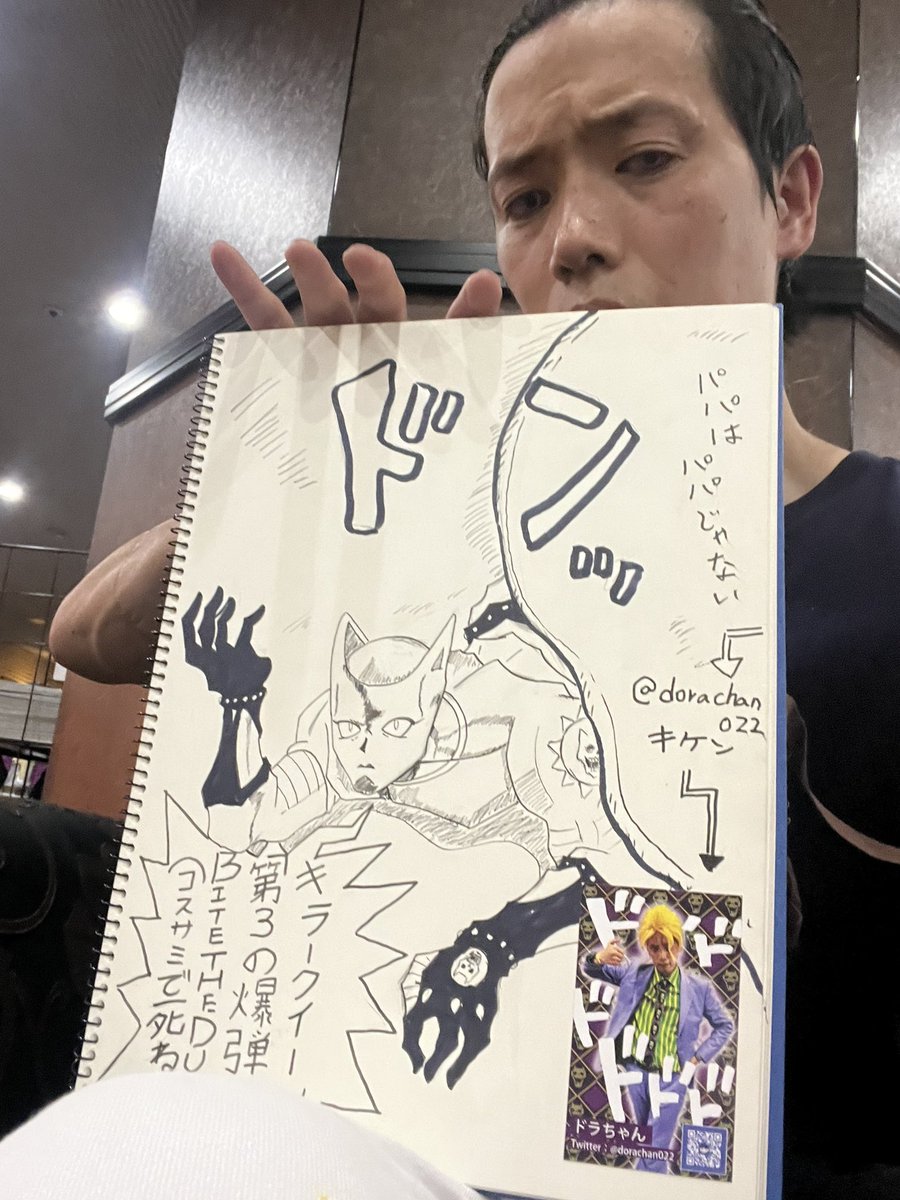 ドンッ
パパは
パパじゃない
@dorachan
022
キケン
キラークイー
第3の爆弾
BITETHEDU
コスサミで死ね
ドドド
ド
ドドドド
ドラちゃん
Twitter：@dorachan022